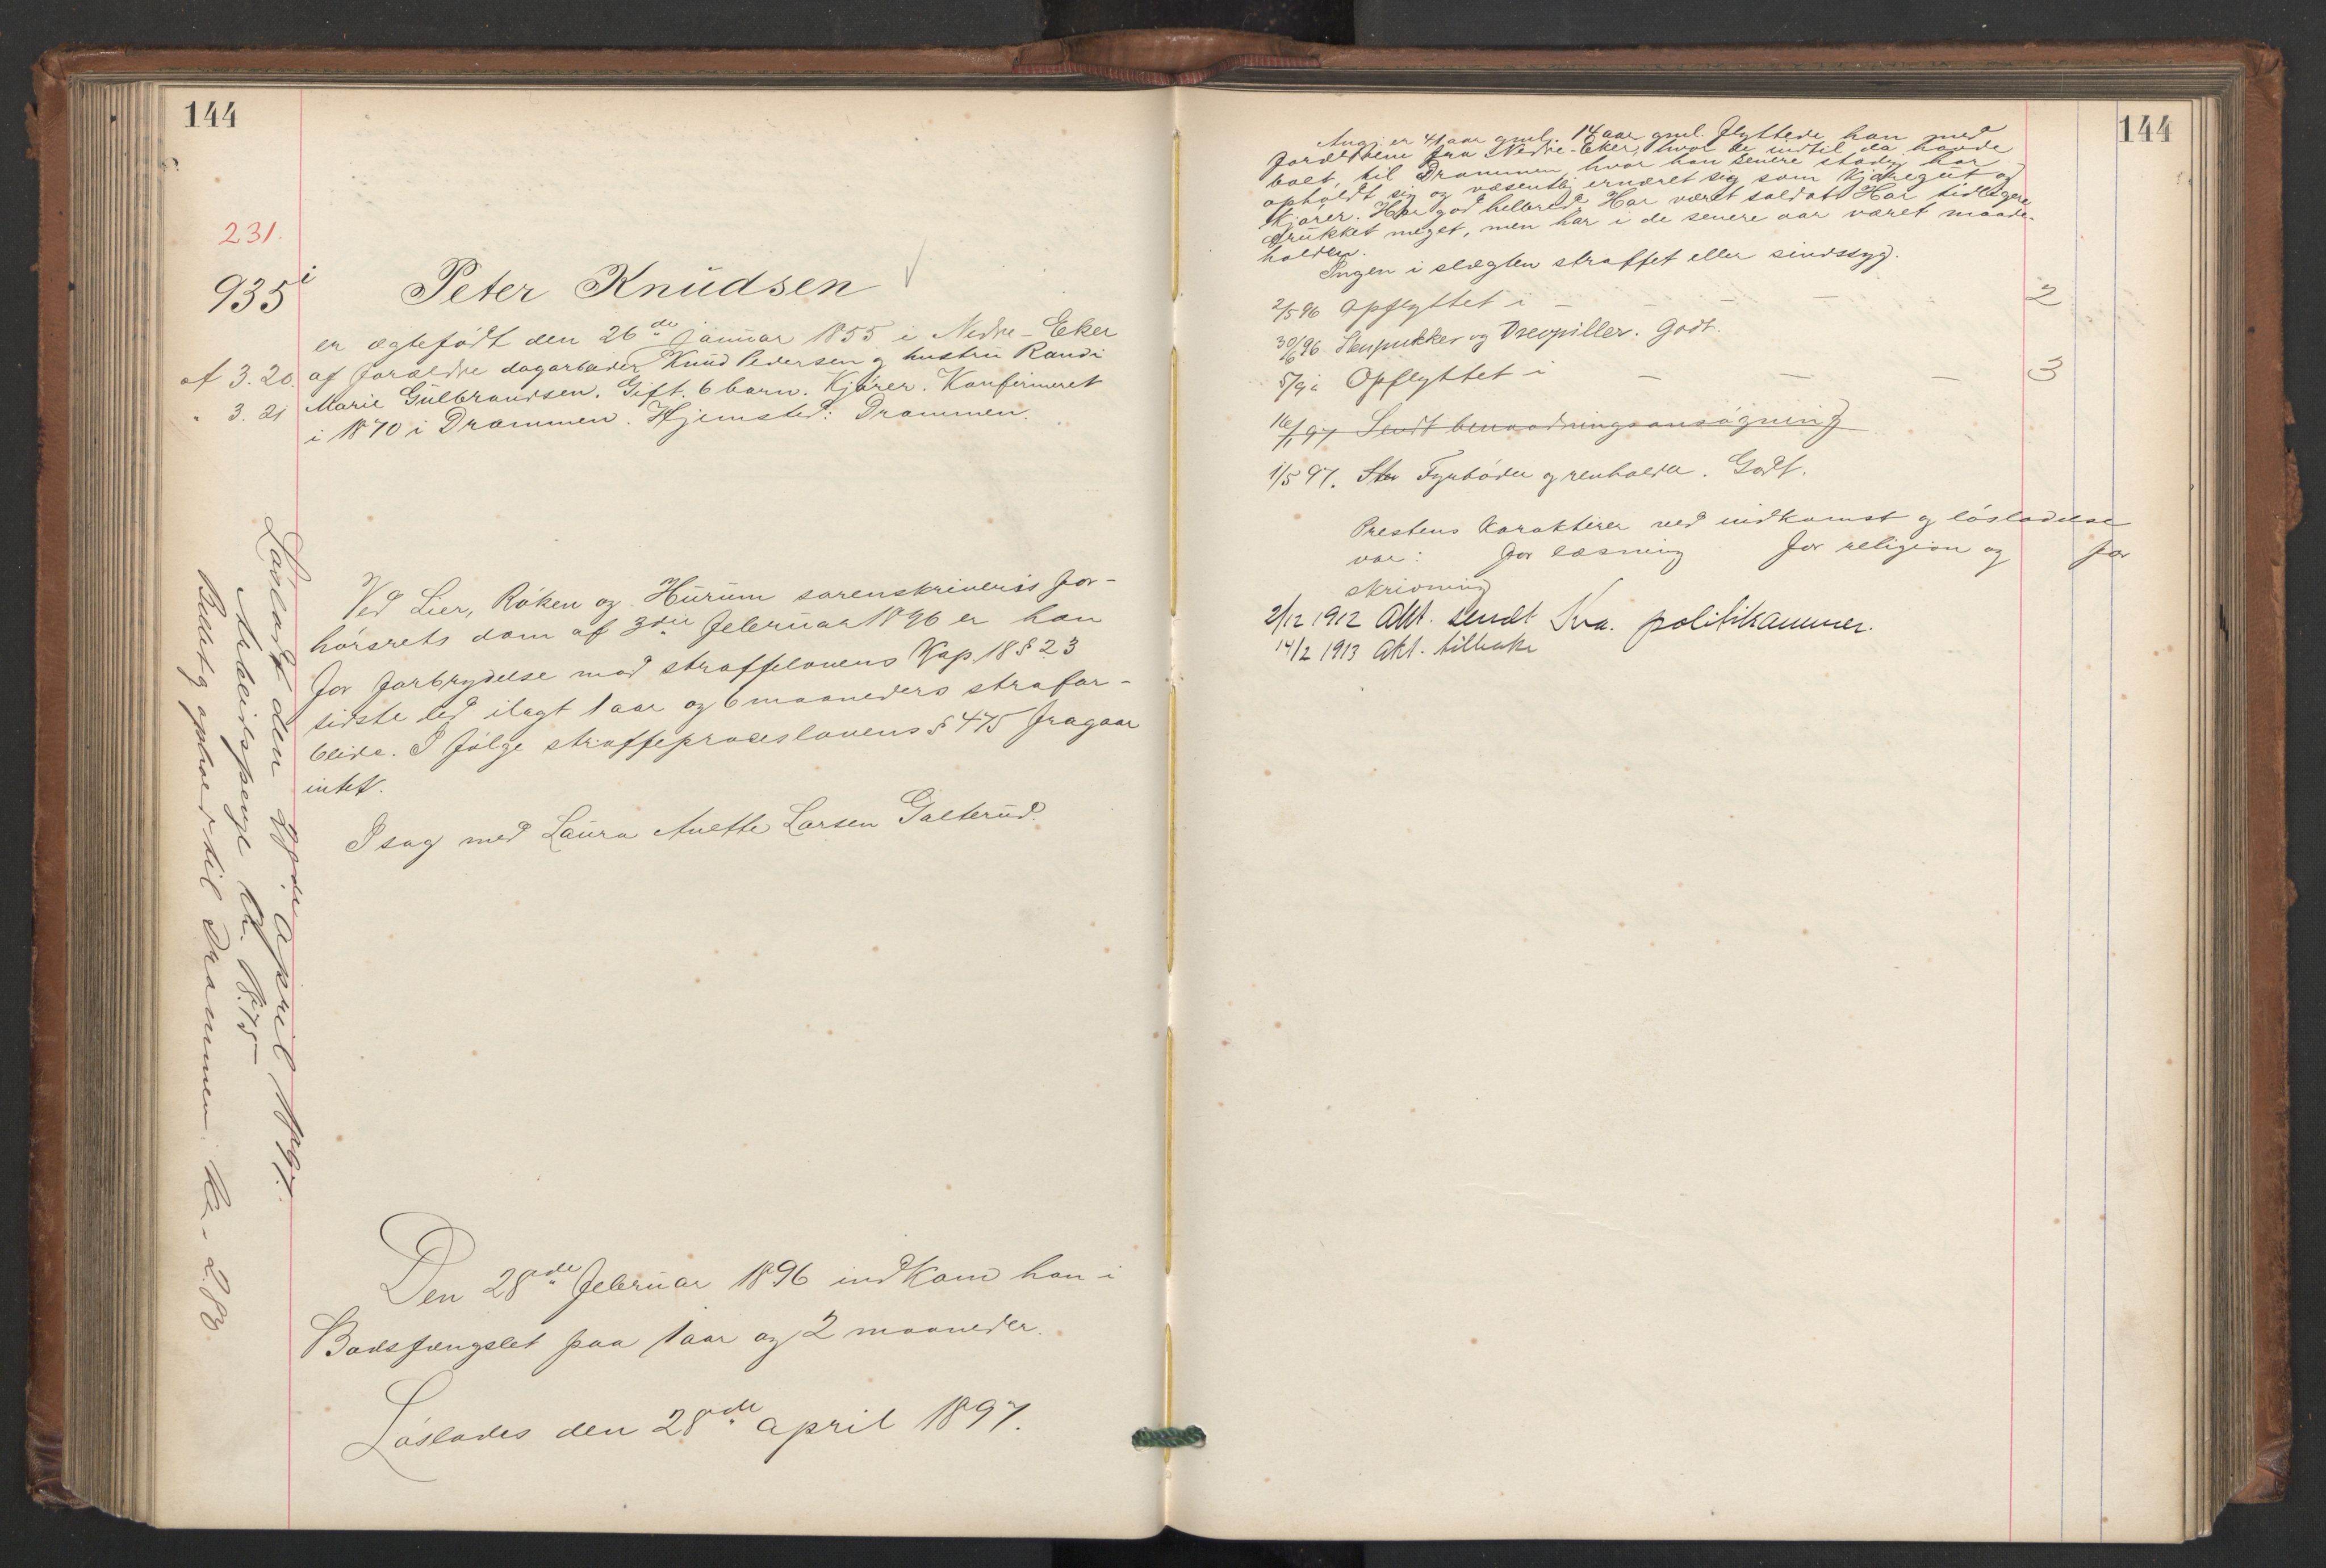 144
231.
935 i
Peter Knudsen
er ægtefødt den 26de januar 1855 i Nedre-Eker
af 3.20. af forældre dagarbeider Knud Pedersen og hustru Randi
" 3.21 Marie Gulbrandsen. Gift. 6 barn. Kjører. Konfirmeret
i 1870 i Drammen. Hjemsted: Drammen.
Ved Lier, Røken og Hurum sorenskriveris for-
hørsrets dom af 3die februar 1896 er han
for forbrydelse mod straffelovens Kap. 18 § 23
sidste led ilagt 1 aar og 6 maaneders strafar-
beide. I følge straffeproceslovens § 475 fragaar
intet.
I sag med Laura Anette Larsen Galterud.
Den 28de februar 1896 indkom han i
Bodsfængslet paa 1 aar og 2 maaneder.
Løslades den 28de april 1897.
Løsladt den april 1897.
Arbeidspenge Kr. 18.75
Billet og ophold til Drammen Kr. 2.80.
144
Angj. er 41 aar gml. 14 aar gml. flyttede han med
forældrene fra Nedre-Eker, hvor de indtil da havde
boet, til Drammen, hvor han senere stadig har
opholdt sig og væsentlig ernæret sig som kjøregut og
kjører. Har god helbred. Har været soldat. Har tidligere
drukket meget, men har i de senere aar været maade-
holden.
Ingen i slægten straffet eller sindssyg.
2/5 96 Opflyttet i – – – – 2
30/6 96 Stenpukker og Drevpiller. Godt.
5/9 " Opflyttet i – – – 3
16/1 97 Sendt benaadningsansøgning
1/5 97. Fyrbøder og renholder. Godt.
Prestens karakterer ved indkomst og løsladelse
var: for læsning for religion og for
skrivning
2/12 1912 Akt. sendt Kra. politikammer.
14/2 1913 Akt. tilbake